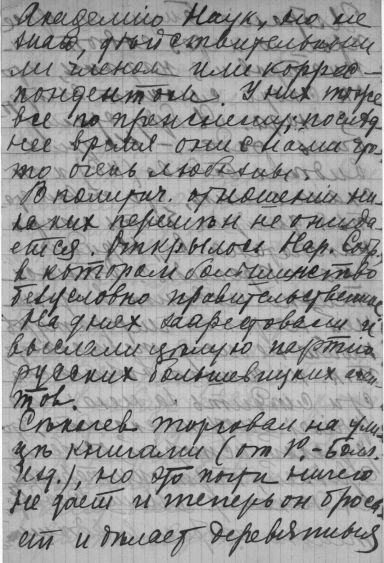 Академию Наук, но не
знаю действительным
ли членом или коррес-
пондентом. У них тоже
все по прежнему, послѣд
нее время они с нами что
то очень любезны.
В политич. отношении ни
каких перемѣн не ожида
ется. Открылось Нар. Соб.,
в котором большинство
безусловно правительствен.
На днях заарестовали и
выслали цѣлую партию
русских большевицких аген
тов.
торговал на ули
цѣ книгами (от Р.-Болг.
изд.), но это почти ничего
не дает и теперь он броса
ет и дѣлает деревянныя